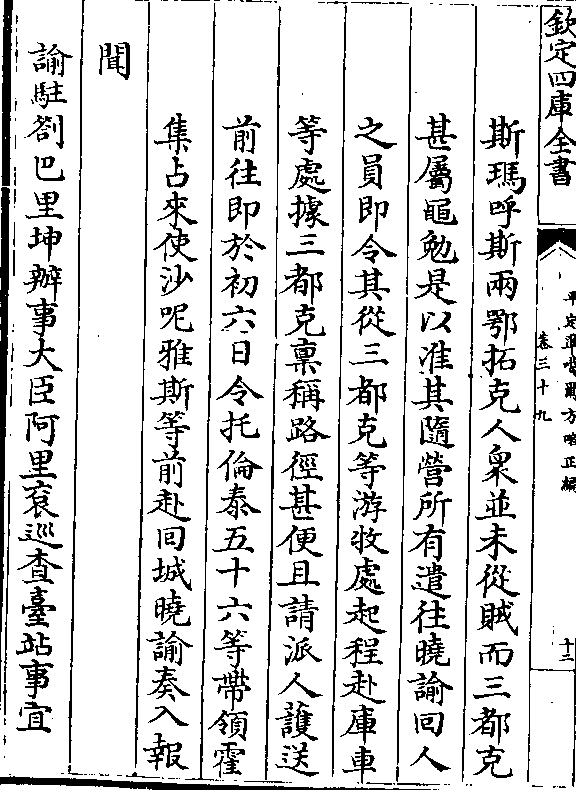 欽定四庫全書
平定準噶爾方略正編
卷三十九
十二
斯瑪呼斯兩鄂拓克人衆並未從賊而三都克
甚屬黽勉是以准其隨營所有遣往曉諭回人
之員即令其從三都克等游牧處起程赴庫車
等處據三都克稟稱路徑甚便且請派人護送
前往即於初六日令托倫泰五十六等帶領霍
集占來使沙呢雅斯等前赴回城曉諭奏入報
聞
諭駐劄巴里坤辦事大臣阿里衮巡查臺站事宜